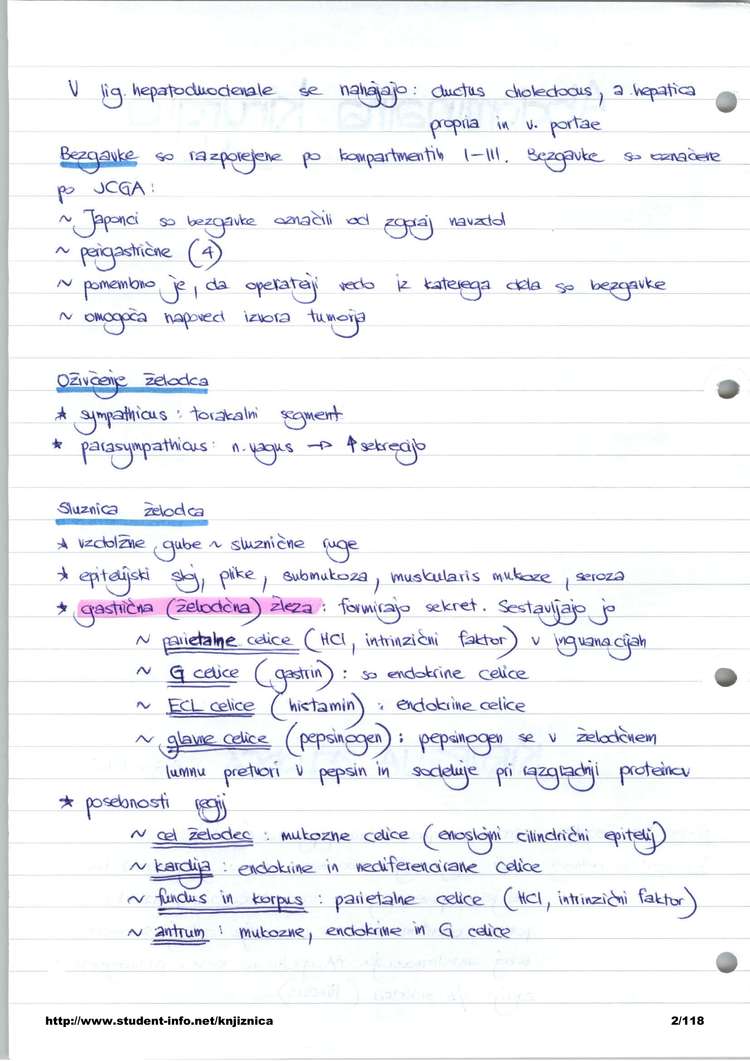 V lig. hepatoduodenale se nahajajo: ductus choledocus, a. hepatica
propria in v. portae
Bezgavke so razporejene po kompartmentih I-III. Bezgavke so označene
po JCGA:
~ Japonci so bezgavke označili od zgoraj navzdol
~ perigastrične (4)
~ pomembno je, da operaterji vedo iz katerega dela so bezgavke
~ omogoča napoved izvora tumorja
Oživčenje želodca
* sympathicus: torakalni segment
* parasympathicus: n. vagus → ↑ sekrecijo
Sluznica želodca
* vzdolžne gube ~ sluznične ruge
* epitelijski sloj, plike, submukoza, muskularis mukoze, seroza
* gastrična (želodčna) žleza: formirajo sekret. Sestavljajo jo
~ parietalne celice (HCl, intrinzični faktor) v inguanacijah
~ G celice (gastrin): so endokrine celice
~ ECL celice (histamin): endokrine celice
~ glavne celice (pepsinogen): pepsinogen se v želodčnem
lumnu pretvori v pepsin in sodeluje pri razgradnji proteinov
* posebnosti regij
~ cel želodec: mukozne celice (enoslojni cilindrični epitelij)
~ kardija: endokrine in nediferencirane celice
~ fundus in korpus: parietalne celice (HCl, intrinzični faktor)
~ antrum: mukozne, endokrine in G celice
http://www.student-info.net/knjiznica
2/118